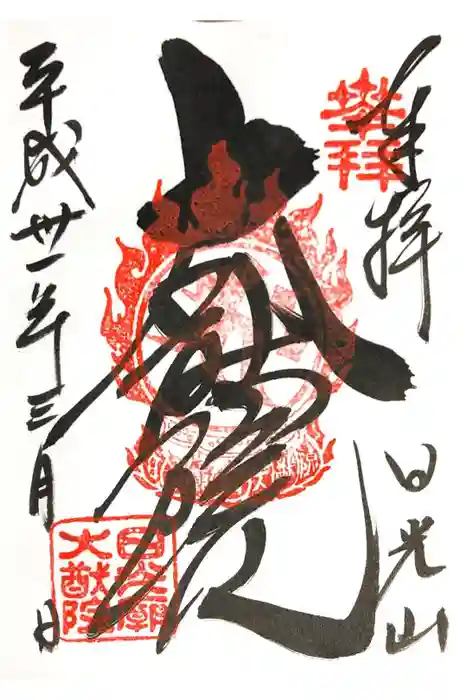 奉拝
登拝
日光山
大猷院
日光廟
大猷院
平成卅一年三月 日